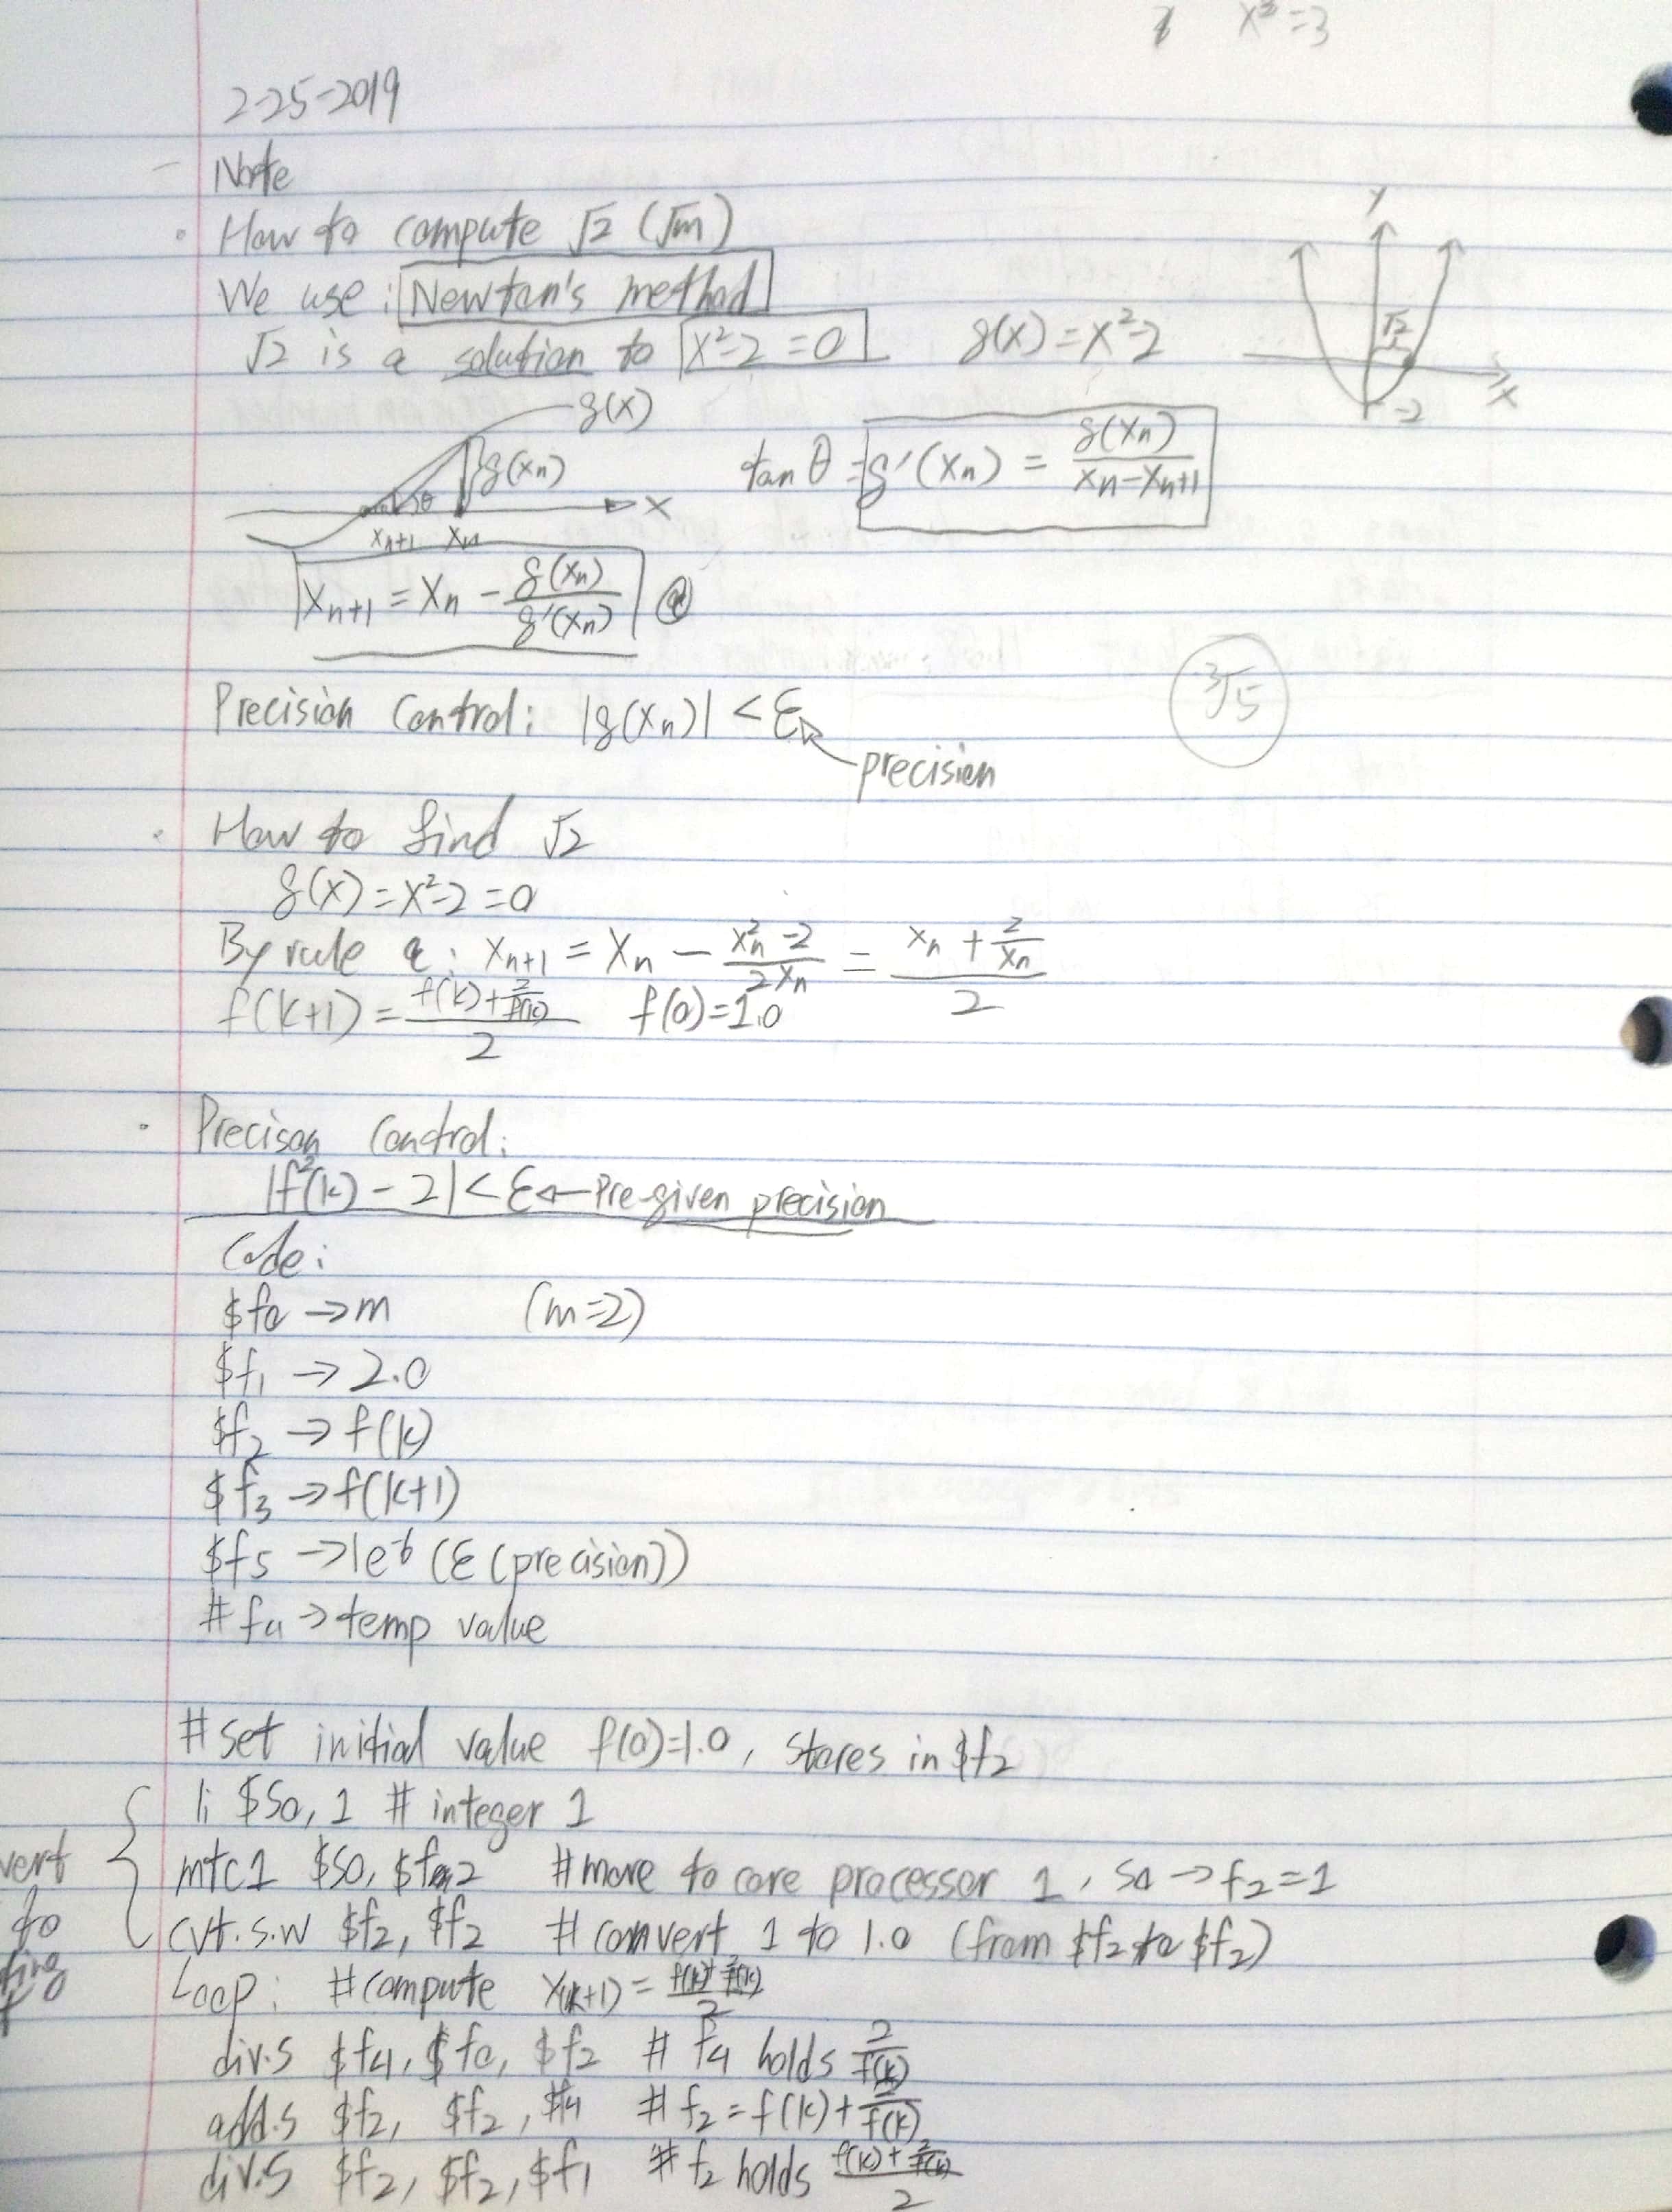 x² = 3
2-25-2019
Note
How to compute √2 (√m)
We use: Newton's method
√2 is a solution to x²-2=0 g(x) = x²-2
y
√2
x
-2
g(x)
g(xn)
θ
x
xn+1 xn
tan θ = g'(xn) = g(xn) / (xn - xn+1)
xn+1 = xn - g(xn) / g'(xn) @
Precision Control: |g(xn)| < ε
precision
³√5
How to find √2
g(x) = x²-2 = 0
By rule a: xn+1 = xn - (xn² - 2) / 2xn = (xn + 2/xn) / 2
f(k+1) = (f(k) + 2/f(k)) / 2 f(0)=1.0
Precison Control:
|f²(k) - 2| < ε ← Pre-given precision
Code:
$f0 → m (m=2)
$f1 → 2.0
$f2 → f(k)
$f3 → f(k+1)
$f5 → 1e-6 (ε (precision))
# f4 → temp value
# set initial value f(0)=1.0, stores in $f2
li $s0, 1 # integer 1
mtc1 $s0, $f2 # move to core processor 1, s0 → f2 = 1
cvt.s.w $f2, $f2 # convert 1 to 1.0 (from $f2 to $f2)
vert
to
Loop: # compute x(k+1) = (f(k) + 2/f(k)) / 2
div.s $f4, $f0, $f2 # f4 holds 2/f(k)
add.s $f2, $f2, $f4 # f2 = f(k) + 2/f(k)
div.s $f2, $f2, $f1 # f2 holds (f(k) + 2/f(k)) / 2